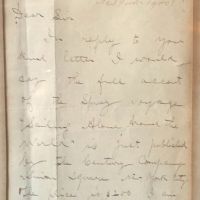 Dear Sir
In reply to your
kind letter I would
say the full account
of the Spray voyage
"Sailing Alone Around the
World" is just published
by the Century Company
Union Square New York City
The price is $2.00 I am